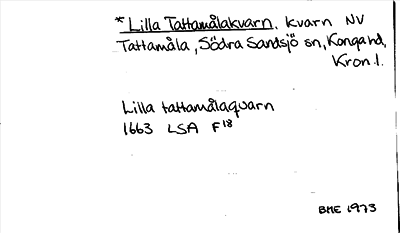 * Lilla Tattamålakvarn. kvarn NV
Tattamåla, Södra Sandsjö sn, Konga hd,
Kron. l.
Lilla tattamålaqvarn
1663 LSA F18
BME 1973